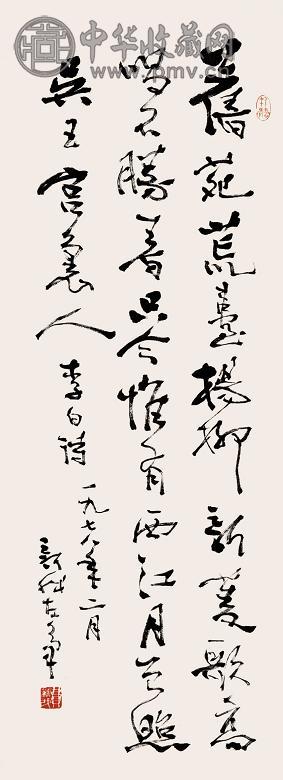 中华收藏网
www.pmv.cn
舊苑荒臺楊柳新菱歌高
唱不勝春只今惟有西江月曾照
吳王宮裏人 李白詩 一九七八年二月
新我左筆